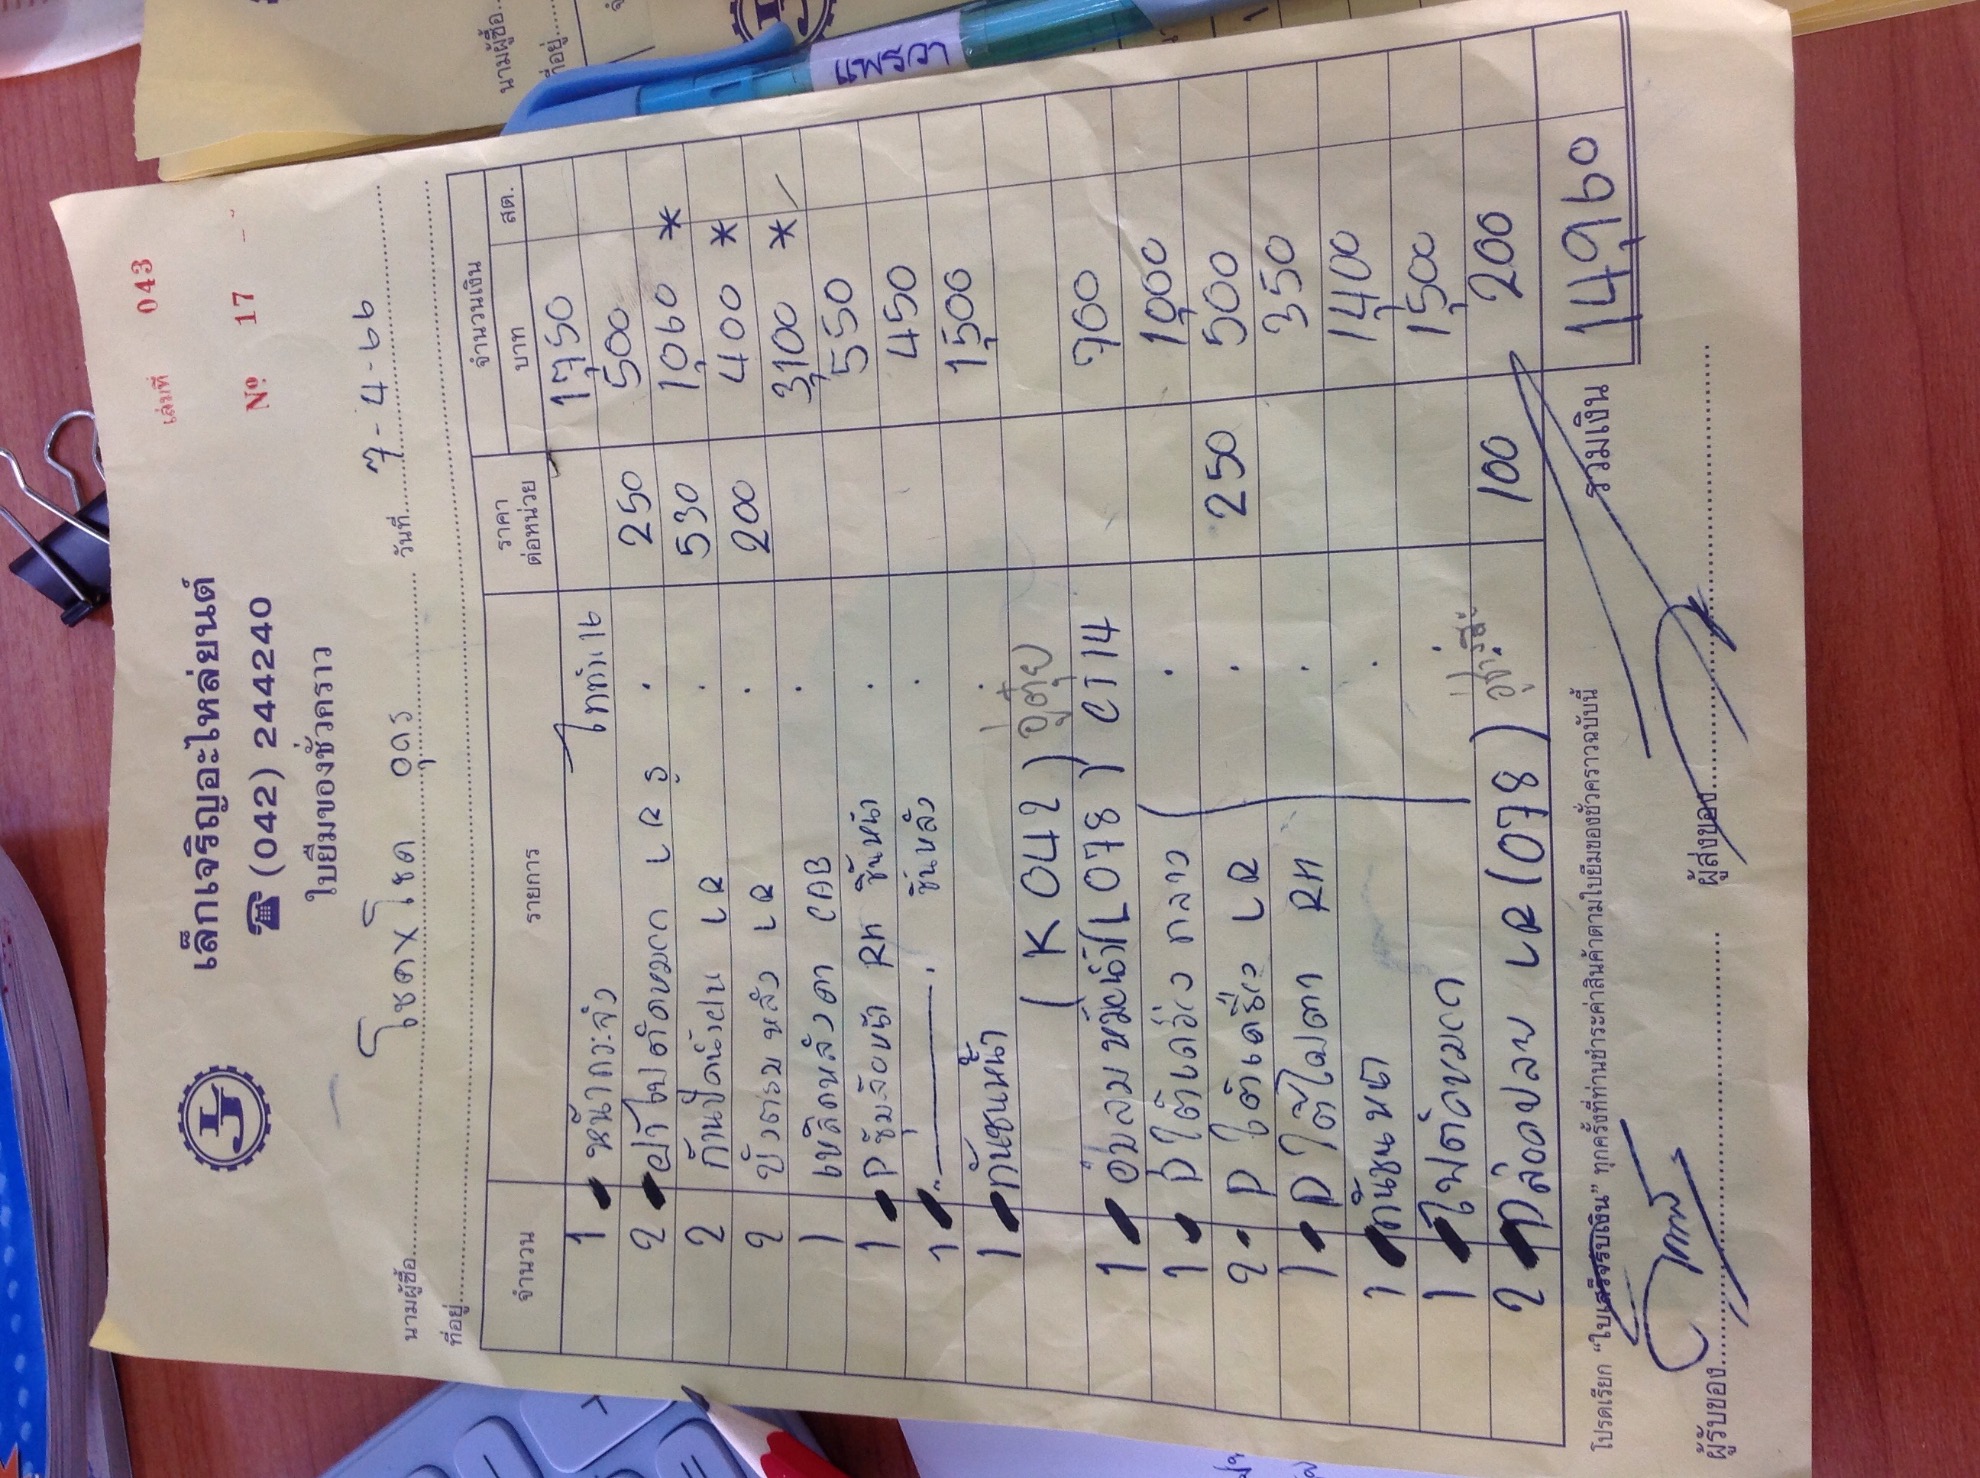 เล่มที่ 043
เล็กเจริญอะไหล่ยนต์
☎ (042) 244240
Nº 17
ใบยืมของชั่วคราว
นามผู้ซื้อ โชคxโชค อุดร วันที่ 7-4-66
ที่อยู่
จำนวน รายการ ราคาต่อหน่วย จำนวนเงิน บาท สต.
1 หน้ากระจัง 1,750
2 ฝาไฟตัดหมอก LR 250 500
2 ก้านปัดน้ำฝน LR 530 1,060 *
2 บังตรมหลัง LR 200 400 *
1 เหล็กหลังคา CAB 3,100 *
1 Pซุ้มล้อหน้า RH ชิ้นหน้า 550
1 ชิ้นหลัง 450
1 กันชนหน้า 1,500
(K 042)
1 (L078) CT14 900
1 P ใต้ กลาง 1,000
2 P ใต้ LR 250 500
1 P ใต้ไฟตา RH 350
1 กันชนหน้า 1,400
1 ไฟตัดหมอก 1,500
2 LR (078) 100 200
โปรดเรียก “ใบเสร็จรับเงิน” ทุกครั้งที่ท่านชำระค่าสินค้าตามใบยืมของชั่วคราวฉบับนี้
รวมเงิน 14,960
ผู้รับของ ผู้ส่งของ
แพรวา
นามผู้ซื้อ
ที่อยู่